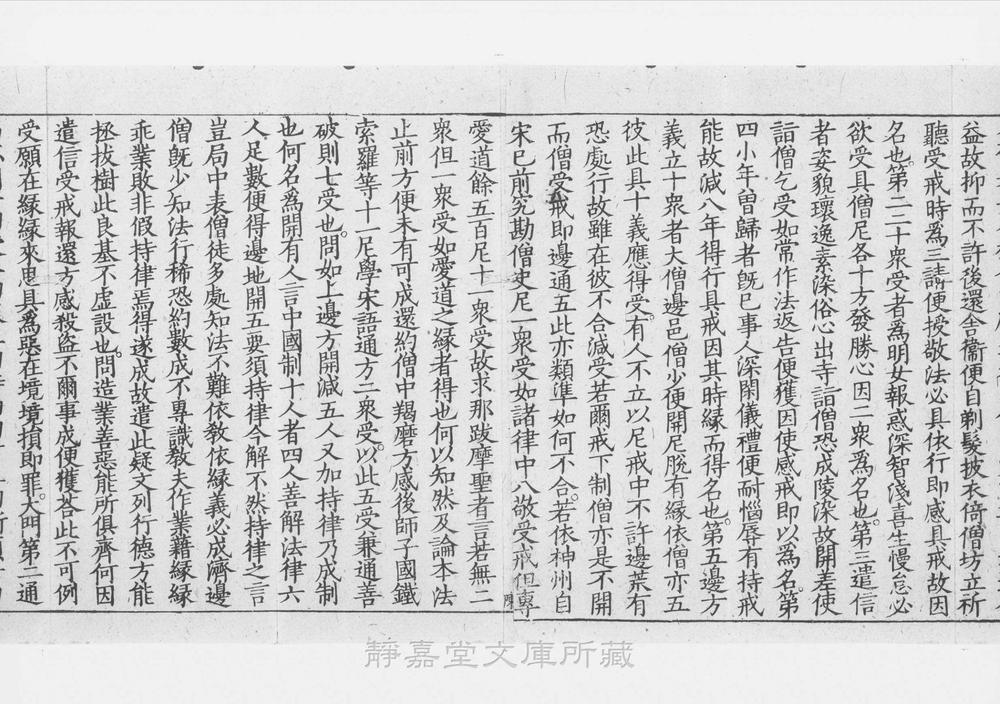 益故抑而不許後還舍衛便自剃髮披衣倚僧坊立祈
聽受戒時爲三請便授敬法必具依行即感具戒故因
名也第二二十衆受者爲明女報惑深智淺喜生慢怠必
欲受具僧尼各十方發勝心因二衆爲名也第三遣信
者姿貌瓌逸素深俗心出寺詣僧恐成陵深故開差使
詣僧乞受如常作法返告便獲因使感戒即以爲名第
四小年曽歸者旣巳事人深閑儀禮便耐惱辱有持戒
能故減八年得行具戒因其時縁而得名也第五邊方
義立十衆者大僧邊邑僧少便開尼脫有縁依僧亦五
彼此具十義應得受有人不立以尼戒中不許邊荒有
恐處行故雖在彼不合減受若爾戒下制僧亦是不開
而僧受戒即邊通五此亦類準如何不合若依神州自
宋巳前究勘僧史尼一衆受如諸律中八敬受戒但專
愛道餘五百尼十一衆受故求那跋摩聖者言若無二
衆但一衆受如愛道之縁者得也何以知然及論本法
止前方便未有可成還約僧中羯磨方感後師子國鐵
索羅等十一尼學宋語通方二衆受以此五受兼通善
破則七受也問如上邊方開減五人又加持律乃成制
也何名爲開有人言中國制十人者四人善解法律六
人足數便得邊地開五要須持律今解不然持律之言
豈局中表僧徒多處知法不難依敎依縁義必成濟邊
僧旣少知法行稀恐約數成不專識敎夫作業藉縁縁
乖業敗非假持律焉得遂成故遣此疑文列行德方能
拯拔樹此良基不虛設也問造業善惡能所俱齊何因
遣信受戒報還方感殺盜不爾事成便獲荅此不可例
受願在縁縁來思具爲惡在境境損即罪大門第二通
靜嘉堂文庫所藏